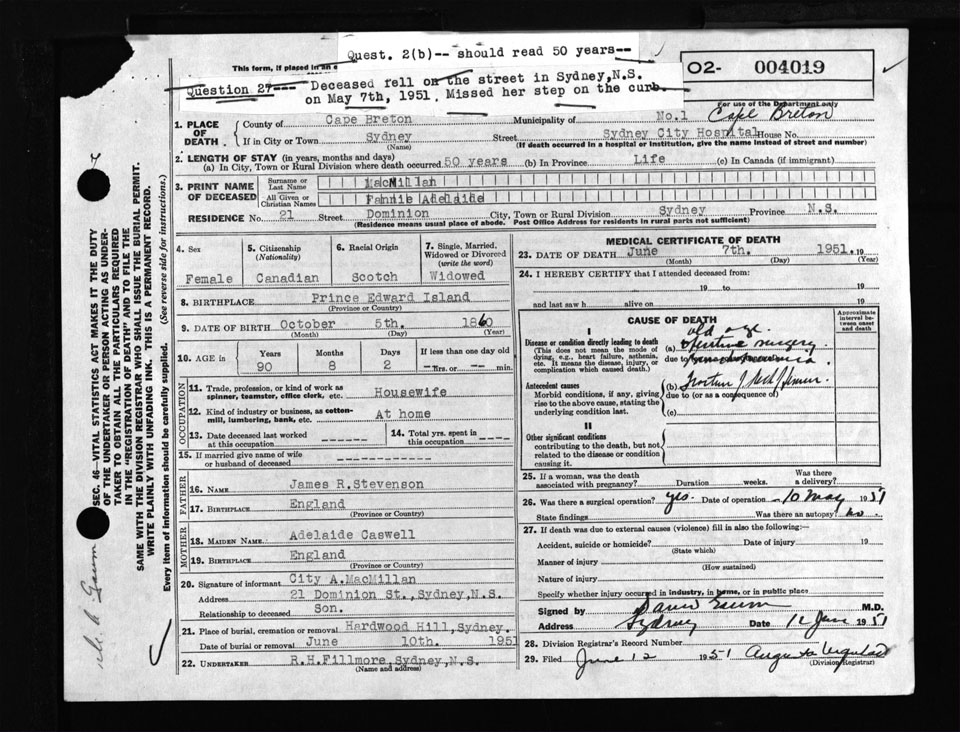 Quest. 2(b)-- should read 50 years--
This form, if placed in an e
Question 27--- Deceased fell on the street in Sydney,N.S.
on May 7th, 1951. Missed her step on the curb.
O2- 004019
For use of the Department only
Cape Breton
1. PLACE OF DEATH. County of Cape Breton Municipality of No.1
If in City or Town Sydney Street Sydney City Hospital House No.
(Name) (If death occurred in a hospital or institution, give the name instead of street and number)
2. LENGTH OF STAY (in years, months and days)
(a) In City, Town or Rural Division where death occurred 50 years (b) In Province Life (c) In Canada (if immigrant)
3. PRINT NAME OF DECEASED Surname or Last Name MacMillan
All Given or Christian Names Fannie Adelaide
RESIDENCE No. 21 Street Dominion City, Town or Rural Division Sydney Province N.S.
(Residence means usual place of abode. Post Office Address for residents in rural parts not sufficient)
4. Sex Female
5. Citizenship (Nationality) Canadian
6. Racial Origin Scotch
7. Single, Married, Widowed or Divorced (write the word) Widowed
8. BIRTHPLACE Prince Edward Island
(Province or Country)
9. DATE OF BIRTH October 5th. 1860
(Month) (Day) (Year)
10. AGE in Years 90 Months 8 Days 2 If less than one day old
hrs. or min.
OCCUPATION
11. Trade, profession, or kind of work as spinner, teamster, office clerk, etc. Housewife
12. Kind of industry or business, as cotton-mill, lumbering, bank, etc. At home
13. Date deceased last worked at this occupation ------
14. Total yrs. spent in this occupation ----
15. If married give name of wife or husband of deceased ------------
FATHER
16. NAME James R.Stevenson
17. BIRTHPLACE England
(Province or Country)
MOTHER
18. MAIDEN NAME Adelaide Caswell
19. BIRTHPLACE England
(Province or Country)
20. Signature of informant City A.MacMillan
Address 21 Dominion St.,Sydney,N.S.
Relationship to deceased Son.
21. Place of burial, cremation or removal Hardwood Hill,Sydney.
Date of burial or removal June 10th. 1951
22. UNDERTAKER R.H.Fillmore,Sydney,N.S.
(Name and address)
MEDICAL CERTIFICATE OF DEATH
23. DATE OF DEATH June 7th. 1951. 19
(Month) (Day) (Year)
24. I HEREBY CERTIFY that I attended deceased from:
19 to 19
and last saw h alive on 19
CAUSE OF DEATH
Approximate interval between onset and death
I
Disease or condition directly leading to death
(This does not mean the mode of dying, e.g., heart failure, asthenia, etc. It means the disease, injury, or complication which caused death.)
old age
(a) operative
due to
Antecedent causes
Morbid conditions, if any, giving rise to the above cause, stating the underlying condition last.
(b)
due to (or as a consequence of)
(c)
II
Other significant conditions
contributing to the death, but not related to the disease or condition causing it.
25. If a woman, was the death associated with pregnancy? Duration weeks. Was there a delivery?
26. Was there a surgical operation? yes. Date of operation 10 May 1951
State findings Was there an autopsy? no.
27. If death was due to external causes (violence) fill in also the following:—
Accident, suicide or homicide? Date of injury 19
(State which)
Manner of injury
(How sustained)
Nature of injury
Specify whether injury occurred in industry, in home, or in public place
Signed by M.D.
Address Sydney Date 12 June 1951
28. Division Registrar's Record Number
29. Filed June 12 1951
(Division Registrar)
SEC. 46—VITAL STATISTICS ACT MAKES IT THE DUTY
OF THE UNDERTAKER OR PERSON ACTING AS UNDER-
TAKER TO OBTAIN ALL THE PARTICULARS REQUIRED
IN THE "REGISTRATION OF DEATH" AND TO FILE THE
SAME WITH THE DIVISION REGISTRAR WHO SHALL ISSUE THE BURIAL PERMIT.
WRITE PLAINLY WITH UNFADING INK. THIS IS A PERMANENT RECORD.
Every item of information should be carefully supplied. (See reverse side for instructions.)